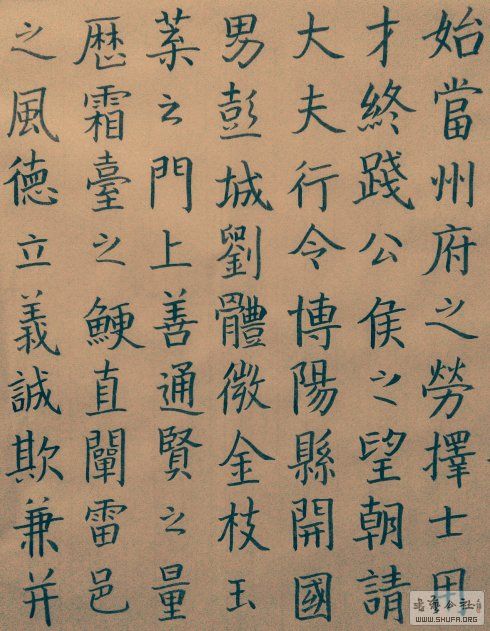 始當州府之勞擇士用
才終踐公侯之望朝請
大夫行令博陽縣開國
男彭城劉體微金枝玉
葉之門上善通賢之量
歷霜臺之鯁直闡雷邑
之風德立義誠欺兼并
WWW.SHUFA.ORG